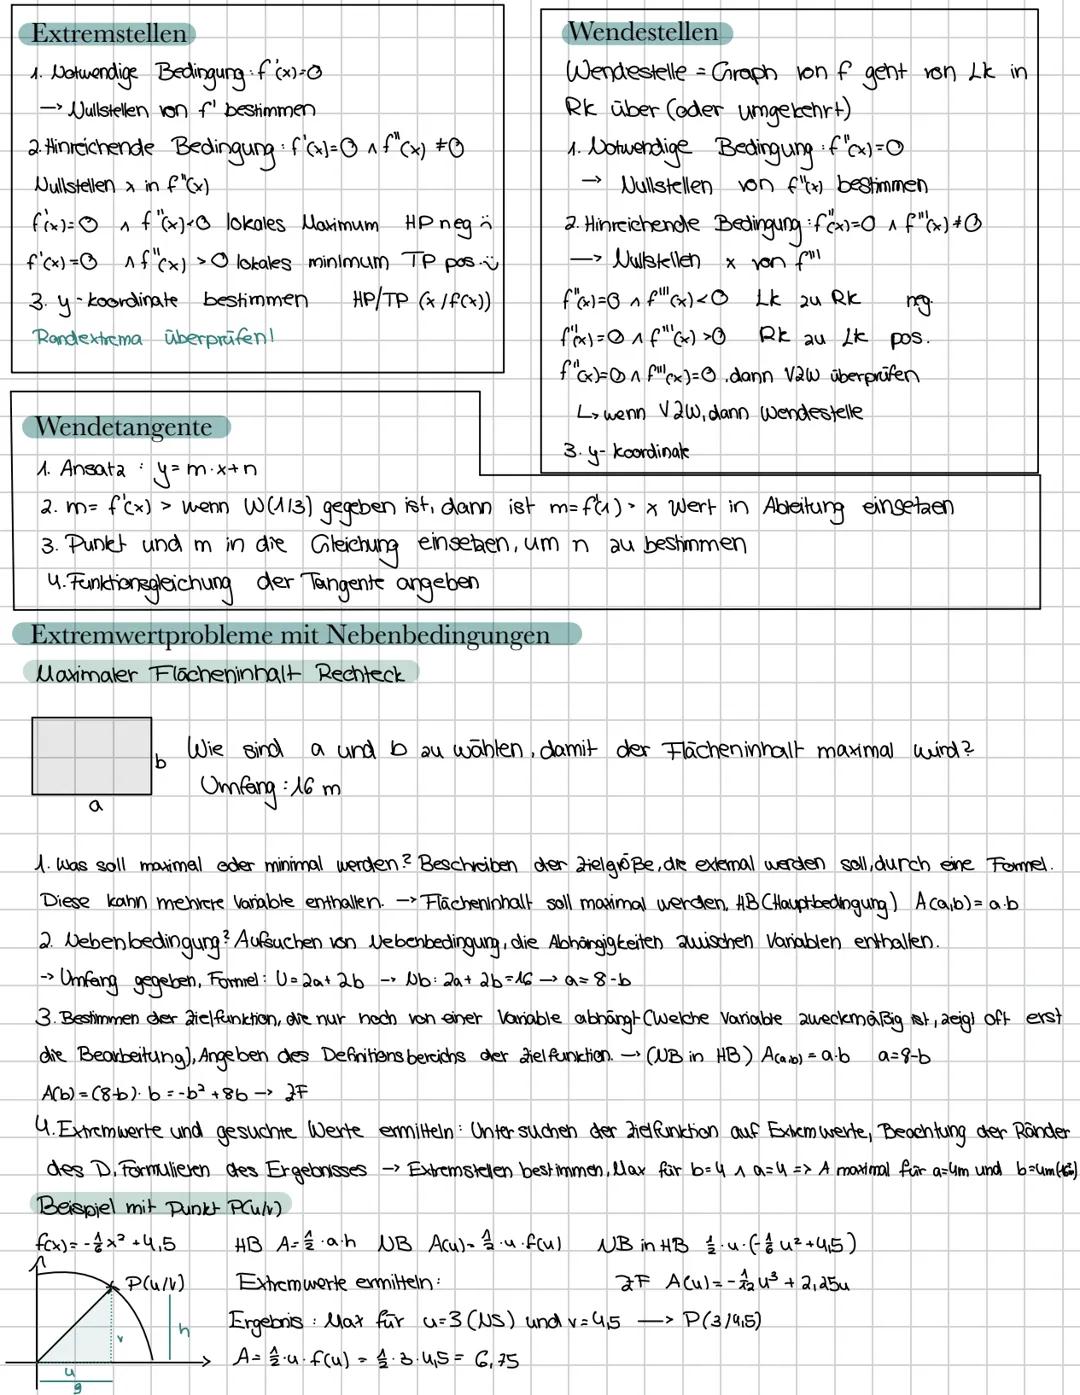 Extremstellen
1. Notwendige Bedingung: f'(x)=0
→ Nullstellen von f' bestimmen
2. Hinreichende Bedingung: f'(x)=0 ∧ f"(x) ≠0
Nullstellen x in f"(x)
f'(x)=0 ∧ f"(x)<0 lokales Maximum HP neg ..
f'(x)=0 ∧ f"(x) >0 lokales minimum TP pos.
3. y-koordinate bestimmen HP/TP (x/f(x))
Randextrema überprüfen!
Wendestellen
Wendestelle = Graph von f geht von Lk in
Rk über (oder umgekehrt)
1. Notwendige Bedingung: f"(x)=0
→ Nullstellen von f"(x) bestimmen
2. Hinreichende Bedingung: f"(x)=0 ∧ f'''(x)≠0
→ Nullstellen x von f'''
f"(x)=0 ∧ f'''(x)<0 Lk zu Rk neg.
f"(x)=0 ∧ f'''(x) >0 Rk zu Lk pos.
f"(x)=0 ∧ f'''(x)=0, dann VZW überprüfen
↳ wenn VZW, dann Wendestelle
3. y- koordinate
Wendetangente
1. Ansatz : y=m·x+n
2. m= f'(x) > wenn W(1/3) gegeben ist, dann ist m=f'(1) > x Wert in Ableitung einsetzen
3. Punkt und m in die Gleichung einsetzen, um n zu bestimmen
4. Funktionsgleichung der Tangente angeben
Extremwertprobleme mit Nebenbedingungen
Maximaler Flächeninhalt Rechteck
b Wie sind a und b zu wählen, damit der Flächeninhalt maximal wird?
Umfang: 16 m
a
1. Was soll maximal oder minimal werden? Beschreiben der Zielgröße, die extemal werden soll, durch eine Formel.
Diese kann mehrere Variable enthalten. → Flächeninhalt soll maximal werden, HB (Hauptbedingung) A(a,b)= a·b
2. Nebenbedingung? Aufsuchen von Nebenbedingung, die Abhängigkeiten zwischen Variablen enthalten.
→ Umfang gegeben, Formel: U=2a+2b → Nb: 2a+2b=16 → a=8-b
3. Bestimmen der Zielfunktion, die nur noch von einer Variable abhängt (Welche Variable zweckmäßig ist, zeigt oft erst
die Bearbeitung), Angeben des Definitionsbereichs der Zielfunktion. → (NB in HB) A(a,b) = a·b a=8-b
A(b) = (8-b)· b = -b² +8b → ZF
4. Extremwerte und gesuchte Werte ermitteln: Untersuchen der Zielfunktion auf Extremwerte, Beachtung der Ränder
des D, Formulieren des Ergebnisses → Extremstellen bestimmen, Max für b=4 ∧ a=4 => A maximal für a=4m und b=4m
Beispiel mit Punkt P(u/v)
f(x)= -1/6x² +4,5 HB A=1/2·a·h NB A(u)= 1/2·u·f(u) NB in HB 1/2·u·(-1/6u²+4,5)
P(u/v) Extremwerte ermitteln: ZF A(u)=-1/12u³+2,25u
v h Ergebnis : Max für u=3 (NS) und v=4,5 → P(3/4,5)
A= 1/2·u·f(u) = 1/2·3·4,5= 6,75
u
g